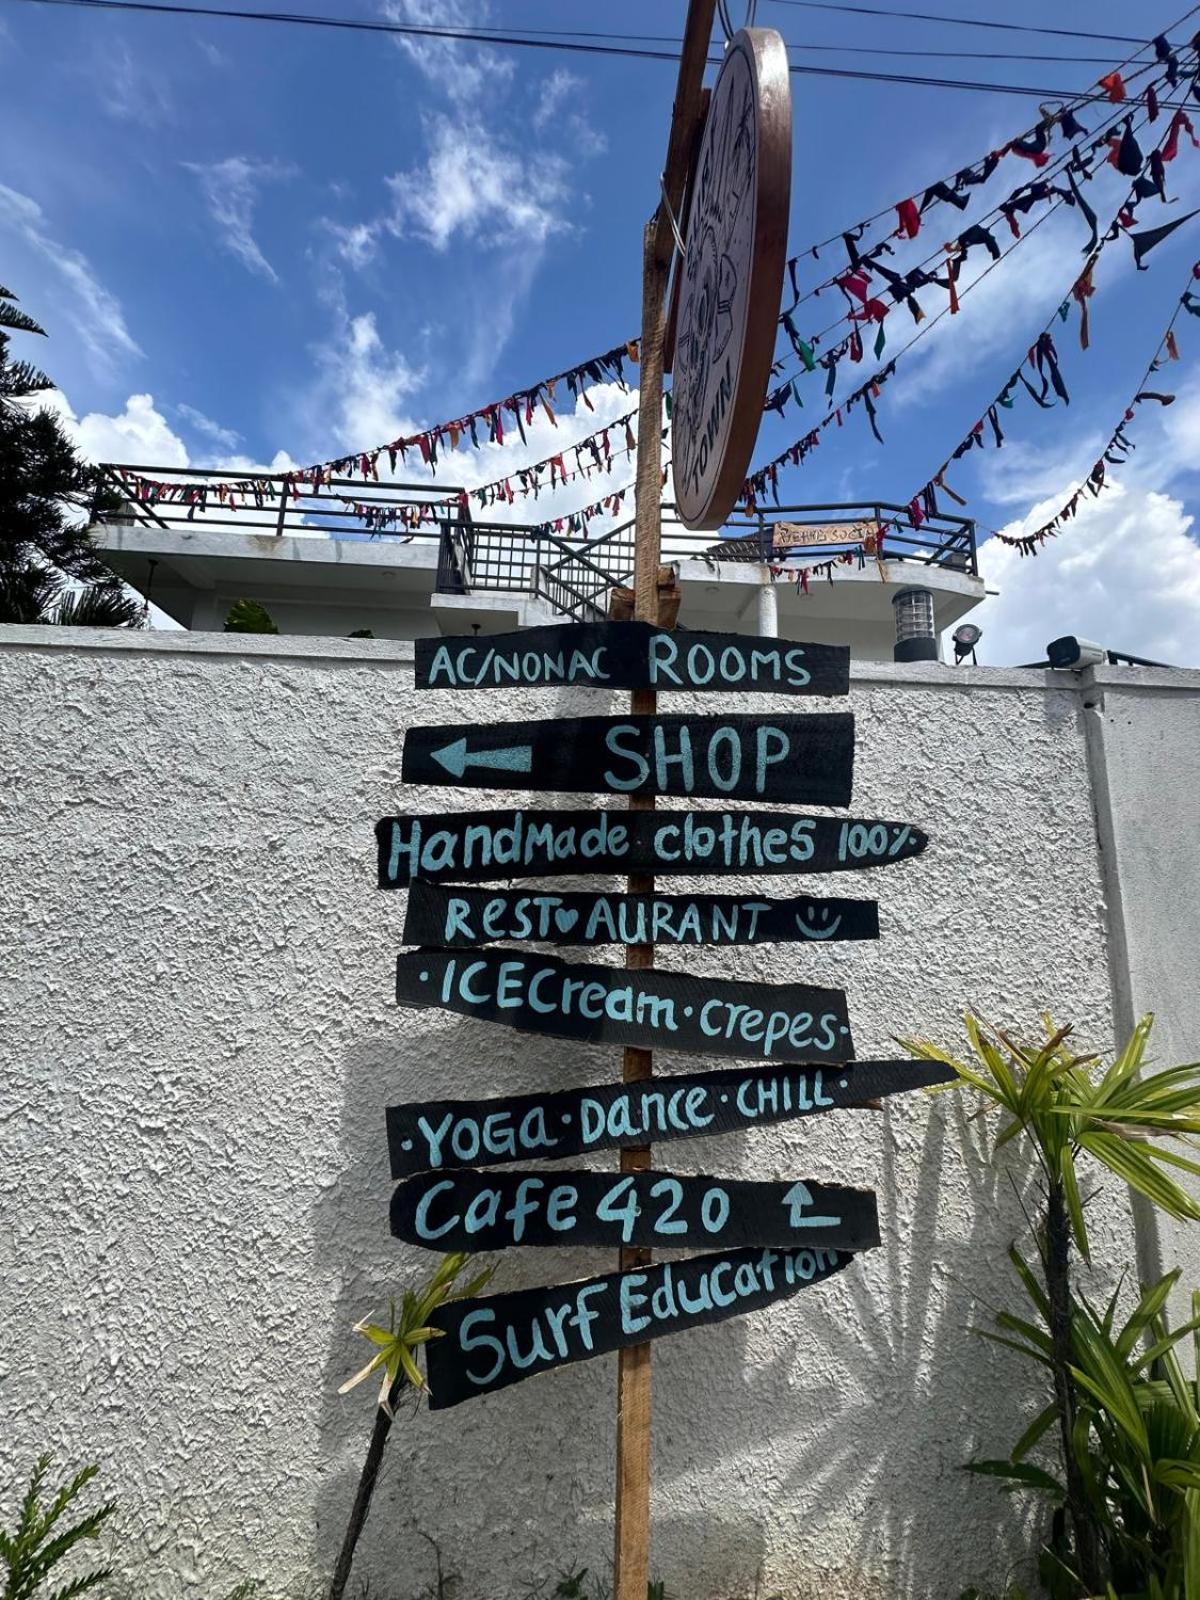 TOWN
AC/NONAC ROOMS
SHOP
HandMade clothes 100%
REST♥AURANT
·ICECream·crepes·
·YOGa·Dance·CHILL·
Cafe 420
Surf Education